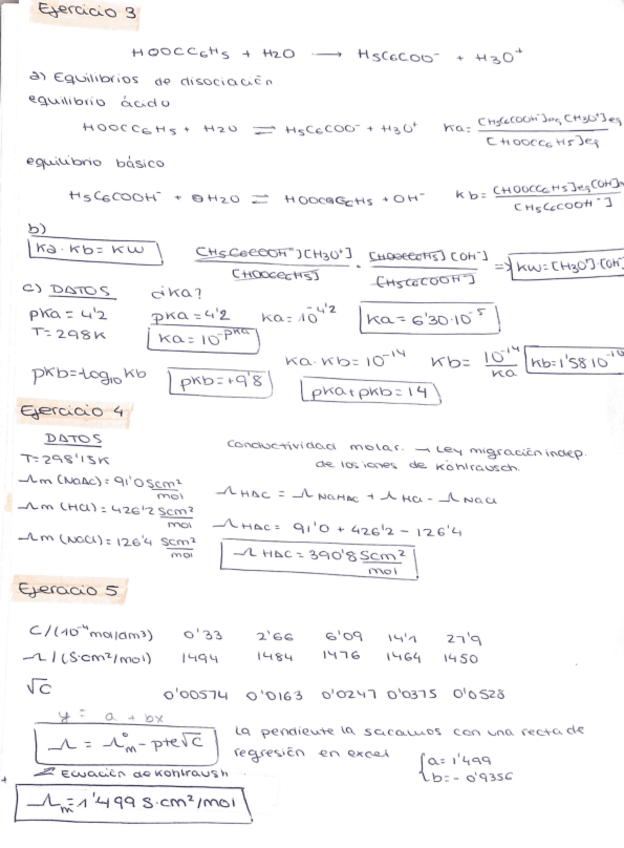 Ejercicio 3
HOOCC6H5 + H2O → H5C6COO⁻ + H3O⁺
a) Equilibrios de disociación
equilibrio ácido
HOOCC6H5 + H2O ⇌ H5C6COO⁻ + H3O⁺ Ka = [H5C6COO⁻]eq [H3O⁺]eq / [HOOCC6H5]eq
equilibrio básico
H5C6COO⁻ + H2O ⇌ HOOCC6H5 + OH⁻ Kb = [HOOCC6H5]eq [OH⁻] / [H5C6COO⁻]
b)
Ka · Kb = Kw [H5C6COO⁻][H3O⁺] / [HOOCC6H5] · [HOOCC6H5][OH⁻] / [H5C6COO⁻] => Kw = [H3O⁺]·[OH⁻]
c) DATOS ¿Ka?
pKa = 4'2 pKa = 4'2 Ka = 10^-4'2 Ka = 6'30·10^-5
T = 298K Ka = 10^-pKa
Ka · Kb = 10^-14 Kb = 10^-14 / Ka Kb = 1'58 10^-10
pKb = -log10 Kb pKb = +9'8 pKa + pKb = 14
Ejercicio 4
DATOS Conductividad molar. → Ley migración indep.
T = 298'15K de los iones de Kohlrausch.
Λm (NaAc) = 91'0 Scm²/mol
Λm (HCl) = 426'2 Scm²/mol Λ HAC = Λ NaHAC + Λ HCl - Λ NaCl
Λm (NaCl) = 126'4 Scm²/mol Λ HAC = 91'0 + 426'2 - 126'4
Λ HAC = 390'8 Scm²/mol
Ejercicio 5
C/(10^-4 mol/dm³) 0'33 2'66 6'09 14'1 27'9
Λ/(S·cm²/mol) 1494 1484 1476 1464 1450
√C 0'00574 0'0163 0'0247 0'0375 0'0528
y = a + bx
Λ = Λ°m - pte√C La pendiente la sacamos con una recta de
regresión en excel { a = 1'499
Ecuación de Kohlraush b = - 0'9356
Λm = 1'499 S·cm²/mol